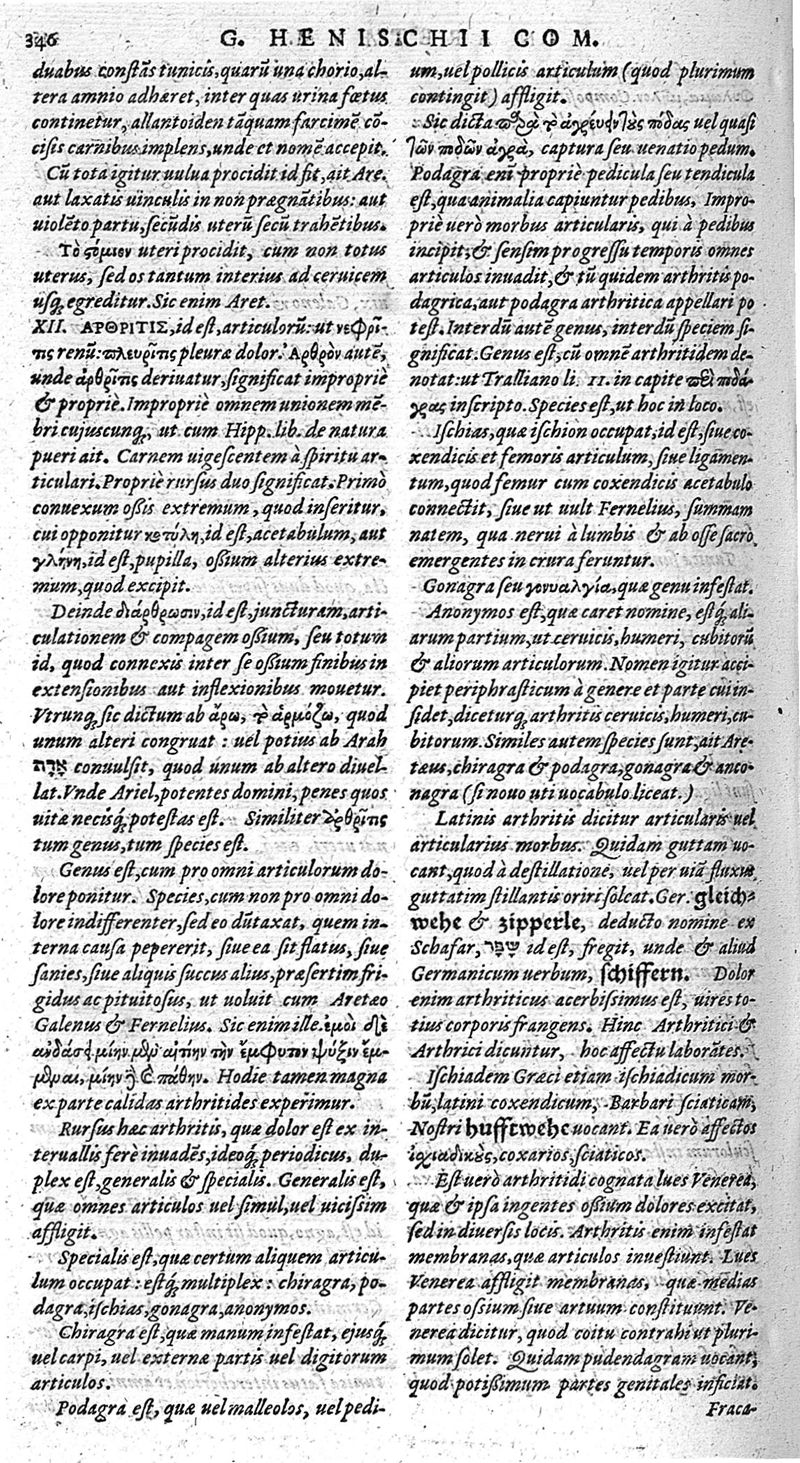 346
G. HENISCHII COM.
duabus constãs tunicis, quarũ una chorio, al-
tera amnio adhæret, inter quas urina fœtus
continetur, allantoiden tãquam farcimẽ cõ-
cisis carnibus implens, unde et nomẽ accepit.
Cũ tota igitur uulua procidit id fit, ait Are.
aut laxatis uinculis in non prægnãtibus: aut
uiolẽto partu, secũdis uterũ secũ trahẽtibus.
Τὸ ϛόμιον uteri procidit, cum non totus
uterus, sed os tantum interius ad ceruicem
usq; egreditur. Sic enim Aret.
XII. ΑΡΘΡΙΤΙΣ, id est, articulorũ: ut νεφρῖ-
τις renũ: πλευρῖτις pleuræ dolor. Ἀρθρὸν autẽ,
unde ἀρθρῖτις deriuatur, significat impropriè
& propriè. Impropriè omnem unionem mẽ-
bri cujuscunq;, ut cum Hipp. lib. de natura
pueri ait. Carnem uigescentem à spiritu ar-
ticulari. Propriè rursus duo significat. Primò
conuexum oßis extremum, quod inseritur,
cui opponitur κοτύλη, id est, acetabulum, aut
γλήνη, id est, pupilla, oßium alterius extre-
mum, quod excipit.
Deinde διάρθρωσιν, id est, juncturam, arti-
culationem & compagem oßium, seu totum
id, quod connexis inter se oßium finibus in
extensionibus aut inflexionibus mouetur.
Vtrunq; sic dictum ab ἄρω, τὸ ἁρμόζω, quod
unum alteri congruat: uel potius ab Arah
ארה conuulsit, quod unum ab altero diuel-
lat. Vnde Ariel, potentes domini, penes quos
uitæ necisq; potestas est. Similiter ἀρθρῖτις
tum genus, tum species est.
Genus est, cum pro omni articulorum do-
lore ponitur. Species, cum non pro omni do-
lore indifferenter, sed eo dũtaxat, quem in-
terna causa pepererit, siue ea sit flatus, siue
sanies, siue aliquis succus alius, præsertim fri-
gidus ac pituitosus, ut uoluit cum Aretæo
Galenus & Fernelius. Sic enim ille. ἐμοὶ
μίην αἰτίην τὴν ἔμφυτον ψύξιν
μίην πάθην. Hodie tamen magna
ex parte calidas arthritides experimur.
Rursus hæc arthritis, quæ dolor est ex in-
teruallis ferè inuadẽs, ideoq; periodicus, du-
plex est, generalis & specialis. Generalis est,
quæ omnes articulos uel simul, uel uicißim
affligit.
Specialis est, quæ certum aliquem articu-
lum occupat: estq; multiplex: chiragra, po-
dagra, ischias, gonagra, anonymos.
Chiragra est, quæ manum infestat, ejusq;
uel carpi, uel externæ partis uel digitorum
articulos.
Podagra est, quæ uel malleolos, uel pedi-
um, uel pollicis articulum (quod plurimum
contingit) affligit.
Sic dicta τὸ πόδας uel quasi
τῶν ποδῶν ἄγρα, captura seu uenatio pedum.
Podagra enĩ propriè pedicula seu tendicula
est, qua animalia capiuntur pedibus. Impro-
priè uerò morbus articularis, qui à pedibus
incipit, & sensim progressu temporis omnes
articulos inuadit, & tũ quidem arthritis po-
dagrica, aut podagra arthritica appellari po
test. Interdũ autẽ genus, interdũ speciem si-
gnificat. Genus est, cũ omnẽ arthritidem de-
notat: ut Tralliano li. 11. in capite περὶ ποδά-
γρας inscripto. Species est, ut hoc in loco.
Ischias, quæ ischion occupat, id est, siue co-
xendicis et femoris articulum, siue ligamen-
tum, quod femur cum coxendicis acetabulo
connectit, siue ut uult Fernelius, summam
natem, qua nerui à lumbis & ab osse sacro
emergentes in crura feruntur.
Gonagra seu γονυαλγία, quæ genu infestat.
Anonymos est, quæ caret nomine, estq; ali-
arum partium, ut ceruicis, humeri, cubitorũ
& aliorum articulorum. Nomen igitur acci-
piet periphrasticum à genere et parte cui in-
sidet, diceturq; arthritis ceruicis, humeri, cu-
bitorum. Similes autem species sunt, ait Are-
tæus, chiragra & podagra, gonagra & anco-
nagra (si nouo uti uocabulo liceat.)
Latinis arthritis dicitur articularis uel
articularius morbus. Quidam guttam uo-
cant, quod à destillatione, uel per uiã fluxus
guttatim stillantis oriri soleat. Ger. gleich-
wehe & zipperle, deducto nomine ex
Schafar, שפר id est, fregit, unde & aliud
Germanicum uerbum, schiffern. Dolor
enim arthriticus acerbißimus est, uires to-
tius corporis frangens. Hinc Arthritici &
Arthrici dicuntur, hoc affectu laborãtes.
Ischiadem Græci etiam ischiadicum mor-
bũ, latini coxendicum, Barbari sciaticam,
Nostri hufftwehe uocant. Ea uerò affectos
ἰσχιαδικοὺς, coxarios, sciaticos.
Est uerò arthritidi cognata lues Venerea,
quæ & ipsa ingentes oßium dolores excitat,
sed in diuersis locis. Arthritis enim infestat
membranas, quæ articulos inuestiunt. Lues
Venerea affligit membranas, quæ medias
partes oßium siue artuum constituunt. Ve-
nerea dicitur, quod coitu contrahi ut pluri-
mum solet. Quidam pudendagram uocant,
quod potißimum partes genitales inficiat.
Fraca-